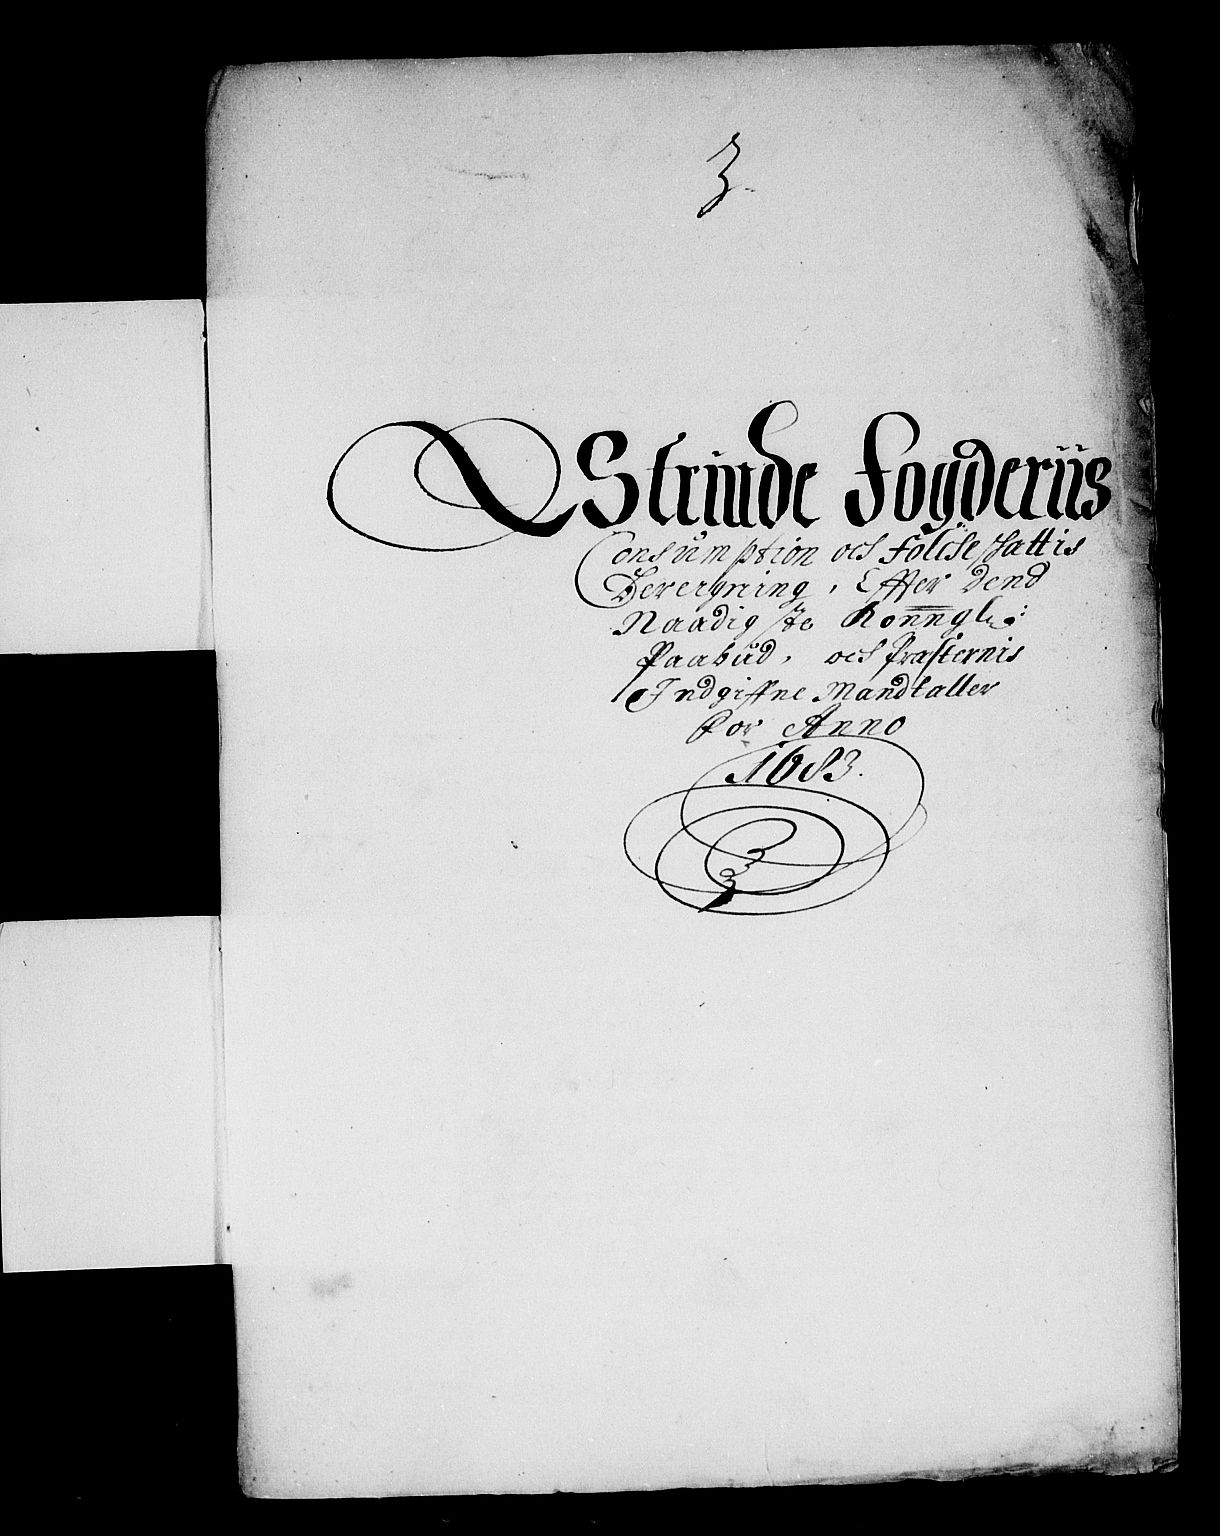 3.
Strinde Fogderiis
Consumption och Folcke Skattis
Beregning, Effter dend
Naadigste Konngl:
Paabud, och Præsternis
Indgiffne Mandtaller
for Anno
1683.